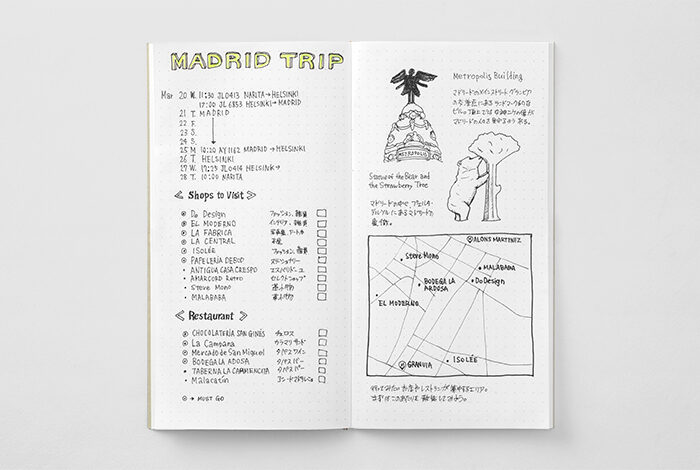 MADRID TRIP
Mar 20 W. 11:30 JL0413 NARITA→HELSINKI
17:00 JL6853 HELSINKI→MADRID
21 T. MADRID
22 F.
23 S.
24 S.
25 M 10:20 AY1162 MADRID→HELSINKI
26 T. HELSINKI
27 W. 17:25 JL0414 HELSINKI→
28 T. 10:00 NARITA
Shops to Visit
Do Design ファッション、雑貨
EL MODERNO インテリア、雑貨
LA FABRICA
LA CENTRAL 本屋
ISOLÉE ファッション、雑貨
PAPELERIA DEBOD ステーショナリー
ANTIGUA CASA CRESPO エスパドリーユ
AMARCORD Retro セレクトショップ
Steve Mono 革小物
MALABABA 革小物
Restaurant
CHOCOLATERÍA SAN GINÉS チュロス
La Campana カラマリサンド
Mercado de San Miguel タパス ワイン
BODEGA LA ADOSA タパスバー
TABERNA LA CARMENCITA タパスバー
Malacatín
→ MUST GO
Metropolis Building
マドリードのメインストリート グランビア
METROPOLIS
Statue of the Bear and
the Strawberry Tree
マドリードの中心 プエルタ・
デル・ソルにあるマドリードの
ALONS MARTINEZ
Steve Mono
MALABABA
BODEGA LA
ARDOSA
Do Design
EL MODERNO
ISOLÉE
GRANVIA